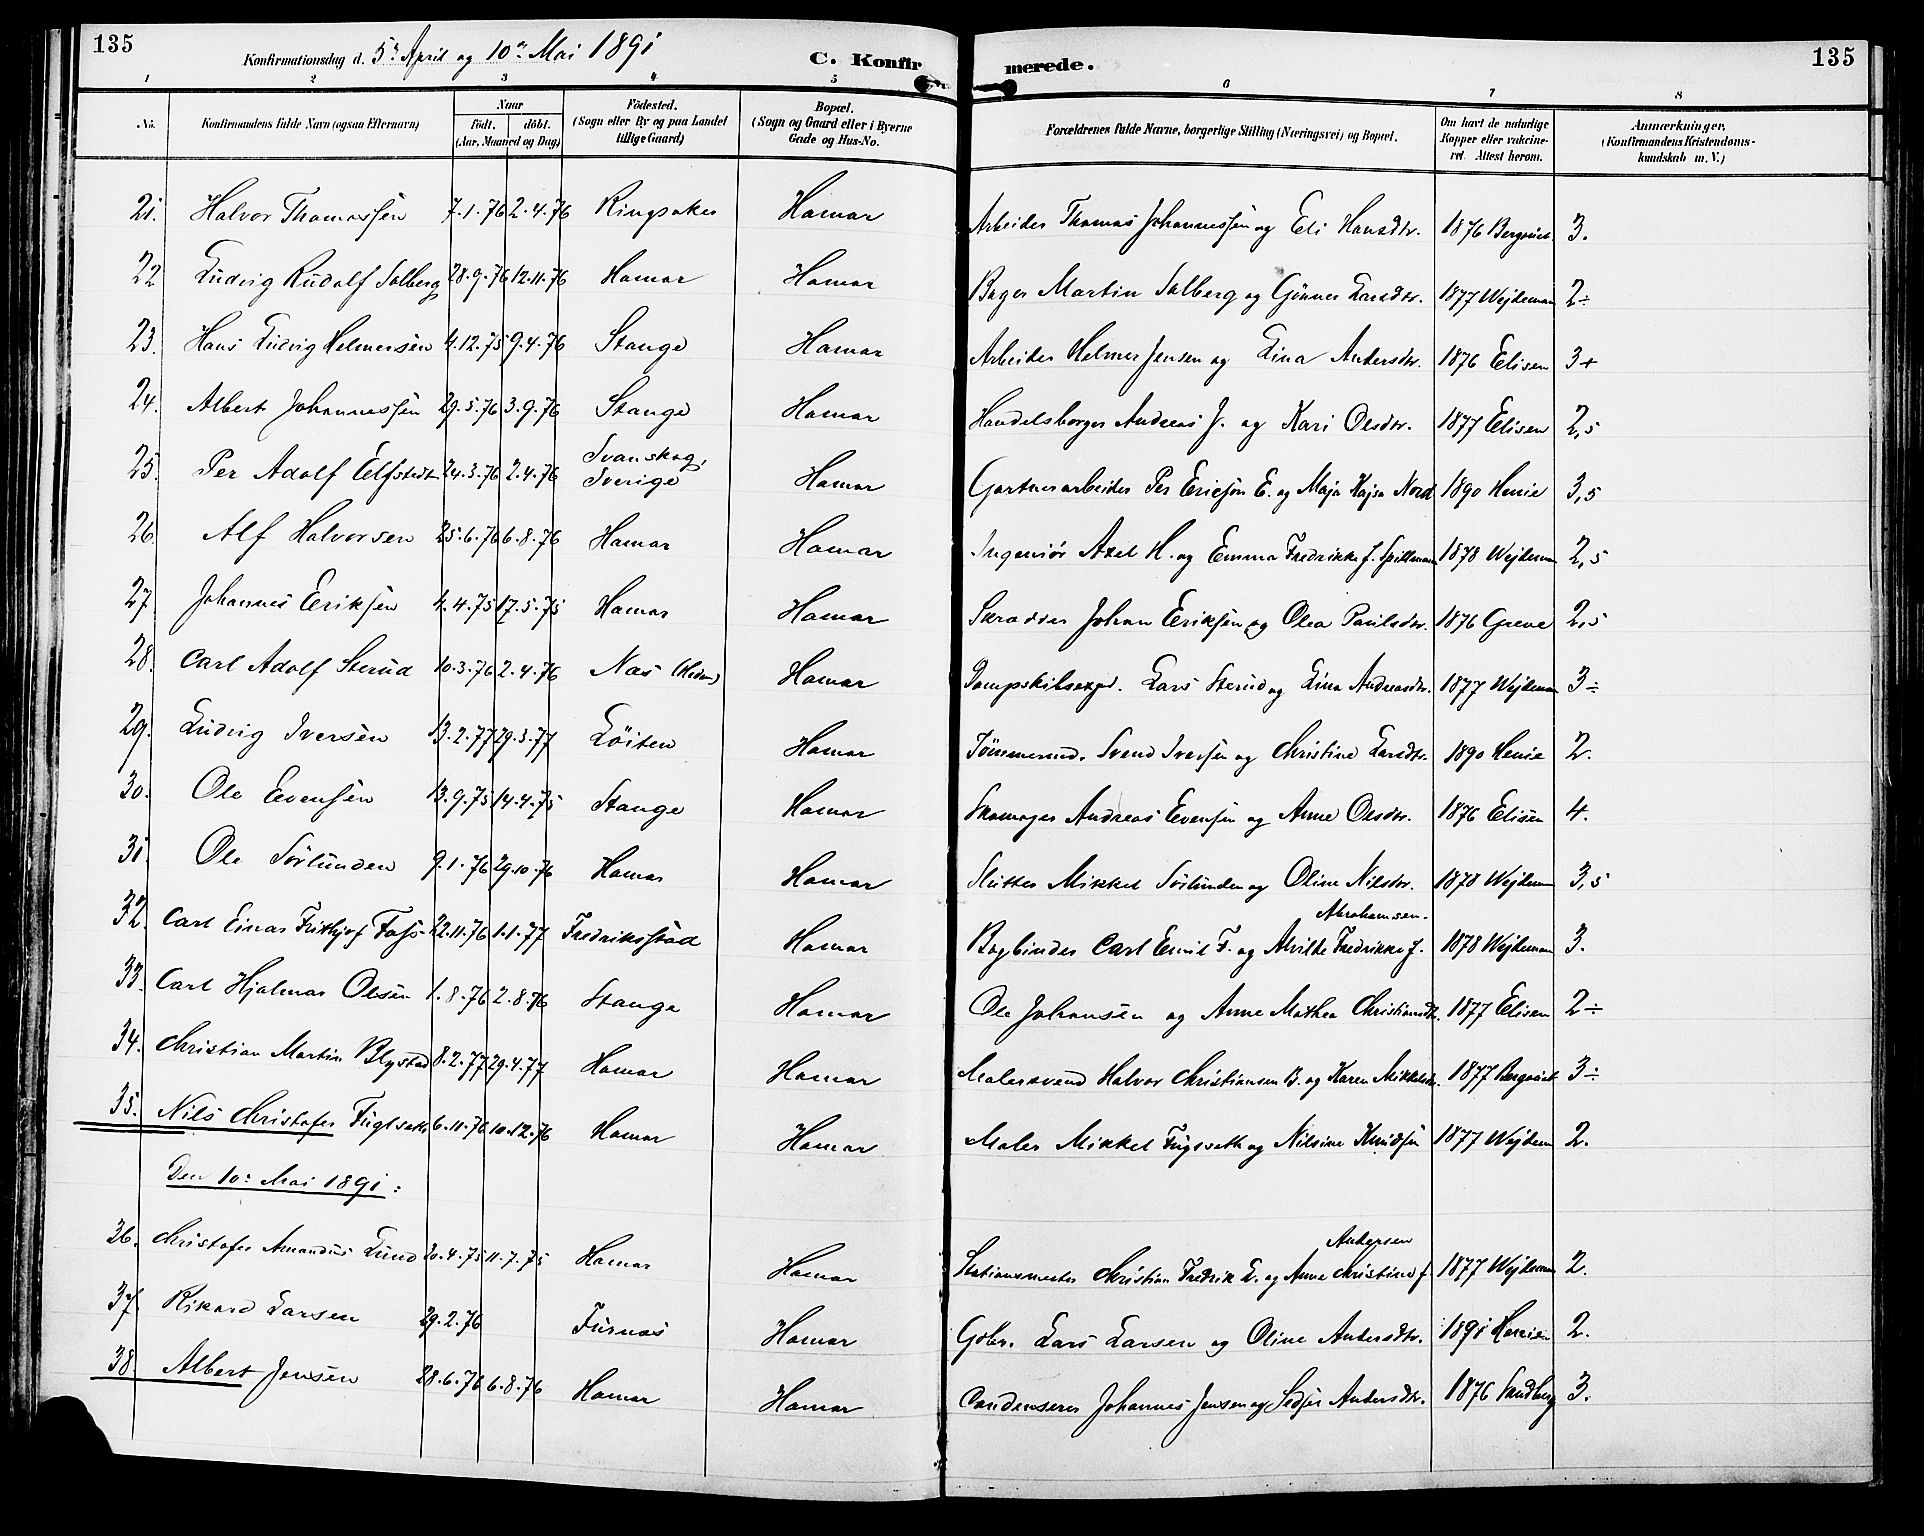 135
Konfirmationsdag d. 5te April og 10de Mai 1891
C. Konfirmerede.
135
1 2 3 4 5 6 7 8
No. Konfirmandens fulde Navn (ogsaa Efternavn) Naar Födt. döbt. (Aar, Maaned og Dag) Födested. (Sogn eller By og paa Landet tillige Gaard) Bopæl. (Sogn og Gaard eller i Byerne Gade og Hus-No. Forældrenes fulde Navne, borgerlige Stilling (Næringsvei) og Bopæl. Om havt de naturlige Kopper eller vaccineret. Attest herom. Anmærkninger. (Konfirmandens Kristendomskundskab m. V.)
21. Halvor Thomassen 7.1.76 2.4.76 Ringsaker Hamar Arbeider Thomas Johannessen og Eli Hansdtr. 1876 3.
22 Ludvig Rudolf Solberg 28.9.76 12.11.76 Hamar Hamar Bager Martin Solberg og Gunner Larsdtr. 1877 Wejdeman 2÷
23. Hans Ludvig Helmersen 4.12.75 9.4.76 Stange Hamar Arbeider Helmer Jensen og Lina Andersdtr. 1876 Elisen 3+
24. Albert Johannessen 29.5.76 3.9.76 Stange Hamar Handelsborger Andreas J. og Kari Olsdtr. 1877 Elisen 2,5
25. Per Adolf Elfstedt 24.3.76 2.4.76 Svanskog, Sverige Hamar Gartnerarbeider Per Ericson E. og Maja Kajsa Nord 1890 Henie 3,5
26 Alf Halvorsen 25.6.76 6.8.76 Hamar Hamar Ingeniør Axel H. og Emma Fredrikke f. Spillmann 1878 Wejdeman 2,5
27. Johannes Eriksen 4.4.75 17.5.75 Hamar Hamar Skrædder Johan Eriksen og Olea Paulsdtr. 1876 Greve 2,5
28. Carl Adolf Sterud 10.3.76 2.4.76 Næs (Hedm) Hamar Dampskibsexped. Lars Sterud og Lina Andreasdtr. 1877 Wejdeman 3÷
29. Ludvig Iversen 13.2.77 29.3.77 Löiten Hamar Tömmermd. Svend Iversen og Christine Larsdtr. 1890 Henie 2.
30. Ole Evensen 13.9.75 14.4.75 Stange Hamar Skomager Andreas Evensen og Anne Olsdtr. 1876 Elisen 4.
31. Ole Sörlunden 9.1.76 29.10.76 Hamar Hamar Slutter Mikkel Sörlunden og Oline Nilsdtr. 1878 Wejdeman 3,5
32. Carl Einar Frithjof Foss 22.11.76 1.1.77 Fredriksstad Hamar Bogbinder Carl Emil F. og Alvilde Fredrikke f. Abrahamsen. 1878 Wejdeman 3.
33. Carl Hjalmar Olsen 1.8.76 2.8.76 Stange Hamar Ole Johansen og Anne Mathea Christiansdtr. 1877 Elisen 2÷
34. Christian Martin Blystad 8.2.77 29.4.77 Hamar Hamar Malersvend Halvor Christiansen B. og Karen Mikkelsdtr. 1877 3÷
35. Nils Christofer Fuglseth 6.11.76 10.12.76 Hamar Hamar Maler Mikkel Fugseth og Nilsine Knudsen 1877 Wejdeman 2.
Den 10de Mai 1891:
36. Christofer Amandus Lund 20.4.75 11.7.75 Hamar Hamar Stationsmester Christian Fredrik L. og Anne Christine f. Andersen 1877 Wejdeman 2.
37. Rikard Larsen 29.2.76 Furnæs Hamar Gbbr. Lars Larsen og Oline Andersdtr. 1891 2.
38. Albert Jensen 28.6.76 6.8.76 Hamar Hamar Johannes Jensen og Andersdtr. 1876 Sandberg 3.